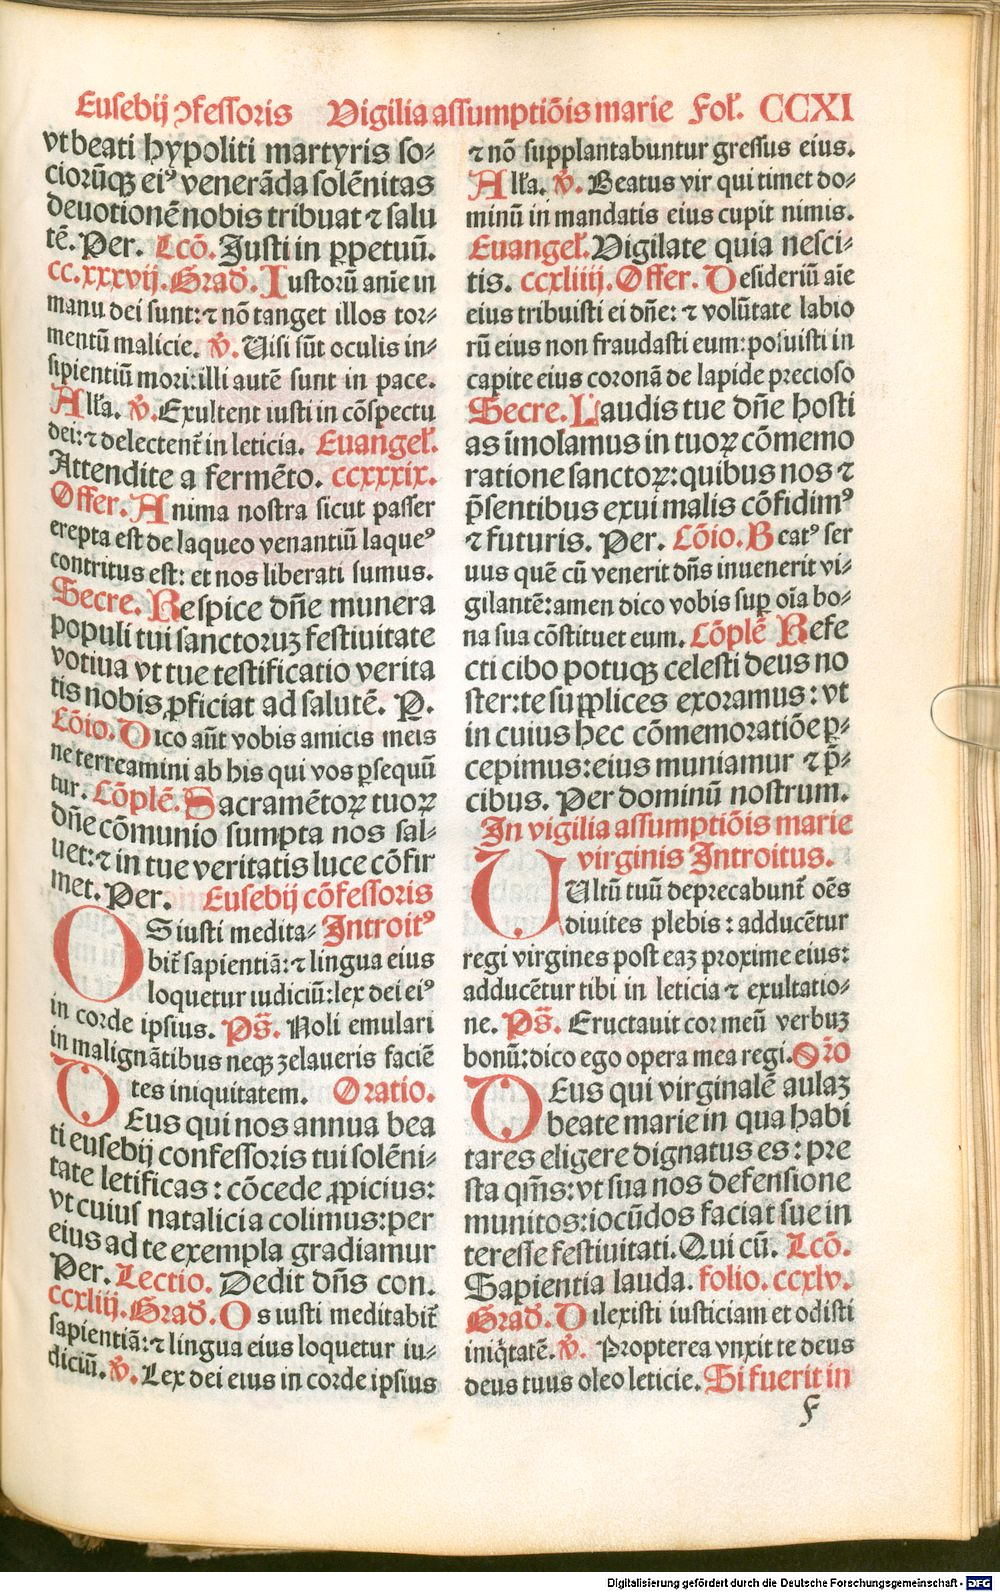 Eusebij ↄfessoris Vigilia assumptiōis marie Fol. CCXI
vt beati hypoliti martyris so⸗
ciorūqꝫ eiꝰ venerāda solēnitas
deuotionē nobis tribuat ⁊ salu
tē. Per. Lcō. Justi in ꝑpetuū.
cc.xxxvij. Grad̄. Iustorū anīe in
manu dei sunt: ⁊ nō tanget illos tor⸗
mentū malicie. v̄. Uisi sūt oculis in⸗
sipientiū mori: illi autē sunt in pace.
All'a. v̄. Exultent iusti in cōspectu
dei: ⁊ delectent̄ in leticia. Euangel̄.
Attendite a fermēto. ccxxxix.
Offer. Anima nostra sicut passer
erepta est de laqueo venantiū laqueꝰ
contritus est: et nos liberati sumus.
Secre. Respice dn̄e munera
populi tui sanctoruꝫ festiuitate
votiua vt tue testificatio verita
tis nobis ꝓficiat ad salutē. P.
Cōio. Dico aūt vobis amicis meis
ne terreamini ab his qui vos ꝑsequū
tur. Cōplē. Sacramētoꝝ tuoꝝ
dn̄e cōmunio sumpta nos sal⸗
uet: ⁊ in tue veritatis luce cōfir
met. Per. Eusebij cōfessoris
OS iusti medita⸗ Introitꝰ
bit̄ sapientiā: ⁊ lingua eius
loquetur iudiciū: lex dei eiꝰ
in corde ipsius. Ps̄. Noli emulari
in malignātibus neqꝫ zelaueris faciē
tes iniquitatem. Oratio.
DEus qui nos annua bea
ti eusebij confessoris tui solēni⸗
tate letificas: cōcede ꝓpicius:
vt cuius natalicia colimus: per
eius ad te exempla gradiamur
Per. Lectio. Dedit dn̄s con.
ccxliij. Grad̄. Os iusti meditabit̄
sapientiā: ⁊ lingua eius loquetur iu⸗
diciū. v̄. Lex dei eius in corde ipsius
⁊ nō supplantabuntur gressus eius.
All'a. v̄. Beatus vir qui timet do⸗
minū in mandatis eius cupit nimis.
Euangel̄. Vigilate quia nesci⸗
tis. ccxliiij. Offer. Desideriū aīe
eius tribuisti ei dn̄e: ⁊ volūtate labio
rū eius non fraudasti eum: posuisti in
capite eius coronā de lapide precioso
Secre. Laudis tue dn̄e hosti
as īmolamus in tuoꝝ cōmemo
ratione sanctoꝝ: quibus nos ⁊
p̄sentibus exui malis cōfidimꝰ
⁊ futuris. Per. Cōio. Beatꝰ ser
uus quē cū venerit dn̄s inuenerit vi⸗
gilantē: amen dico vobis suꝑ oīa bo⸗
na sua cōstituet eum. Cōplē Refe
cti cibo potuqꝫ celesti deus no
ster: te supplices exoramus: vt
in cuius hec cōmemoratiōe ꝑ⸗
cepimus: eius muniamur ⁊ p̄⸗
cibus. Per dominū nostrum.
In vigilia assumptiōis marie
virginis Introitus.
UUltū tuū deprecabunt̄ oēs
diuites plebis: adducētur
regi virgines post eaꝫ proxime eius:
adducētur tibi in leticia ⁊ exultatio⸗
ne. Ps̄. Eructauit cor meū verbuꝫ
bonū: dico ego opera mea regi. Or̄o
DEus qui virginalē aulaꝫ
beate marie in qua habi
tares eligere dignatus es: pre
sta qm̄s: vt sua nos defensione
munitos: iocūdos faciat sue in
teresse festiuitati. Qui cū. Lcō.
Sapientia lauda. folio. ccxlv.
Grad̄. Dilexisti iusticiam et odisti
iniq̄tatē. v̄. Propterea vnxit te deus
deus tuus oleo leticie. Si fuerit in
F
Digitalisierung gefördert durch die Deutsche Forschungsgemeinschaft - DFG